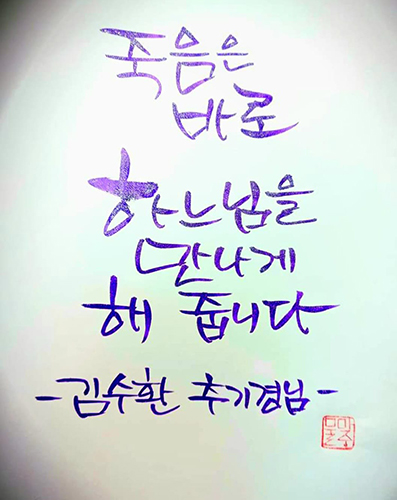 죽음은
바로
하느님을
만나게
해 줍니다
-김수환 추기경님-